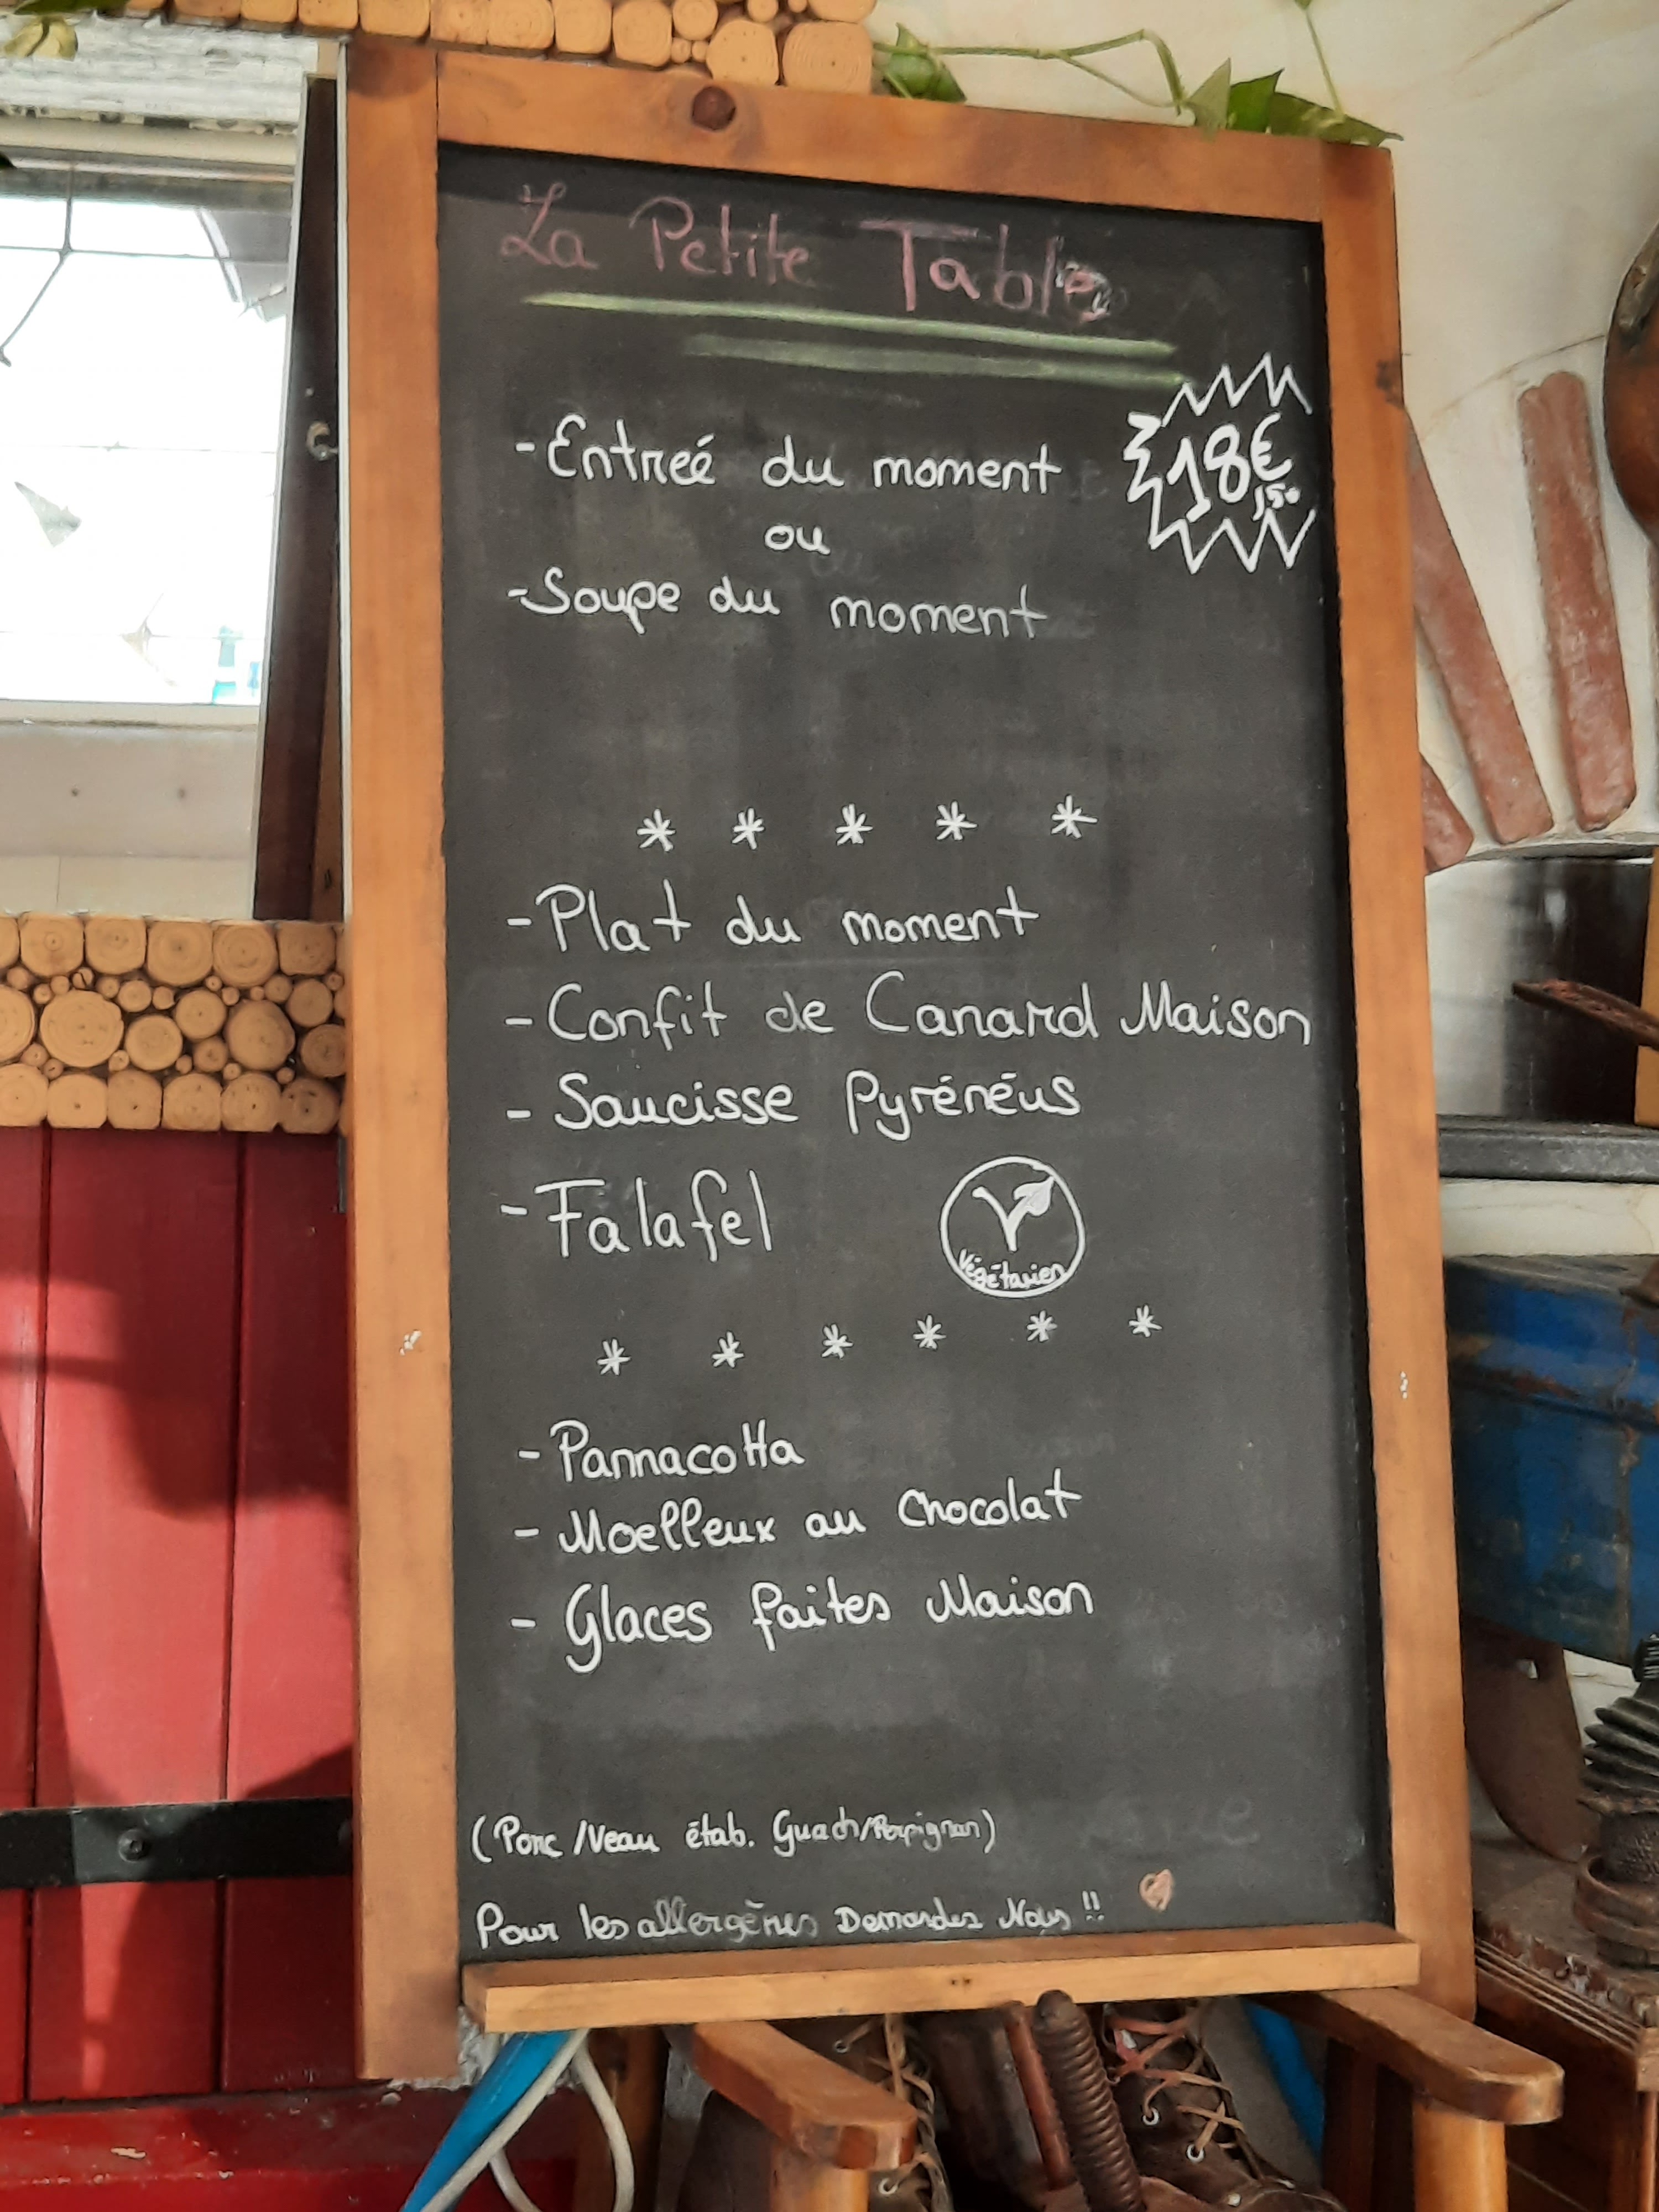 La Petite Table
- Entreé du moment
18€
,50
ou
- Soupe du moment
* * * * *
- Plat du moment
- Confit de Canard Maison
- Saucisse Pyrénéus
- Falafel
Végétarien
* * * * * *
- Pannacotta
- Moelleux au Chocolat
- Glaces faites Maison
(Porc /Veau étab. Guach/Perpignan)
Pour les allergènes Demandes Nous !!